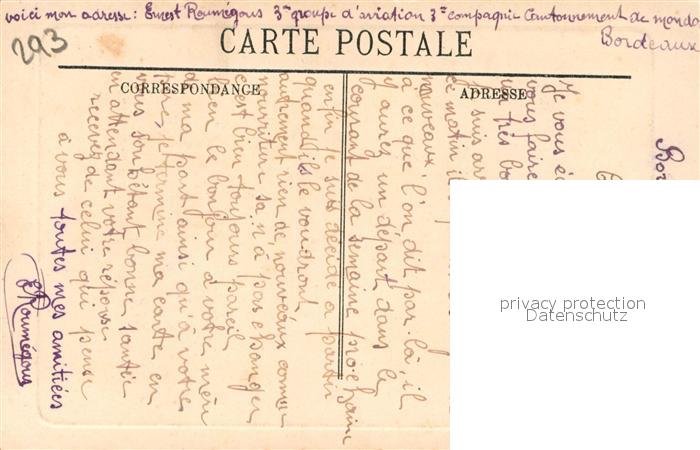 voici mon adresse: Ernest Roumégous 3me groupe d'aviation 3e compagnie Cantonnement de monda
Bordeaux
293
CARTE POSTALE
CORRESPONDANCE
ADRESSE
Bor
Je vous éc
vous faire
un très bo
je suis arr
ce matin il
nouveaux
a ce que l'on dit par là, il
y aurez un départ dans le
courant de la semaine prochaine
enfin je suis décidé a partir
quand ils le voudront
autrement rien de nouveaux comme
nourriture sa n'a pas changer
c'est bien toujours pareil
bien le bonjour a votre mère
d ma part ainsi qu'à votre
je termine ma carte en
vous son étant bonne santée
en attendant votre réponse
recevez de celui qui pense
a vous toutes mes amitiées
ERoumégous
privacy protection
Datenschutz